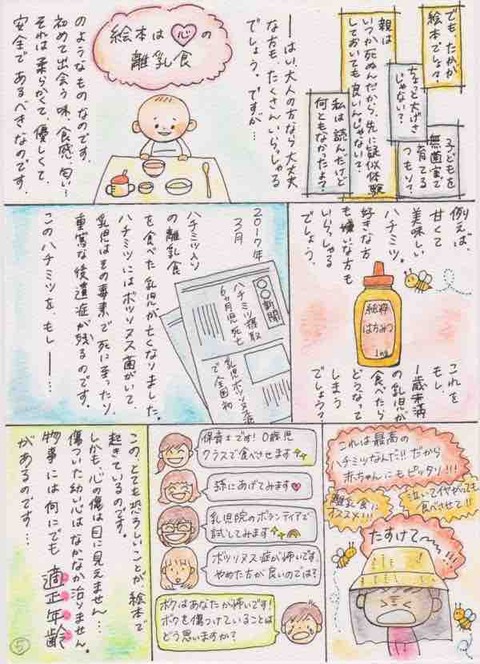 でも、たかが
絵本でしょ？
ちょっと大げさ
じゃない？
子どもを
無菌室で
育てる
つもり？
親は
いつか死ぬんだから、先に疑似体験
しておいても良いんじゃない？
私は読んだけど
何ともなかったよ？
――はい、大人の方なら大丈夫
な方も、たくさんいらっしゃる
でしょう。ですが…
絵本は心の
離乳食
のようなものなのです。
初めて出会う味、食感、匂い…
それは柔らかくて、優しくて、
安全であるべきなのです。
例えば、
甘くて
美味しい
ハチミツ。
好きな方
も嫌いな方も
いらっしゃる
でしょう。
絵本
はちみつ
1kg
これを
もし、
1歳未満
の乳児が
食べたら
どうなって
しまう
でしょう？
2017年
3月
〇〇新聞
ハチミツ摂取
6ヵ月児死亡
乳児ボツリヌス症
で全国初
ハチミツ入り
の離乳食
を食べた乳児が亡くなりました。
ハチミツにはボツリヌス菌がいて、
乳児はその毒素で死に至ったり
重篤な後遺症が残るのです。
このハチミツを、もし――…
これは最高の
ハチミツなんだ!!だから
赤ちゃんにもピッタリ!!!
離乳食に
オススメ!!!
泣いてイヤがっても
食べさせて!!
たすけて〜〜!!!
保育士です！0歳児
クラスで食べさせます
孫にあげてみます♡
乳児院のボランティアで
試してみます
ボツリヌス症が怖いです。
やめた方が良いのでは？
ボクはあなたが怖いです！
ボクを傷つけていることは
どう思いますか？
この、とても恐ろしいことが絵本で
起きているのです。
しかも、心の傷は目に見えません…
傷ついた幼い心はなかなか治りません。
物事には何にでも適正年齢
があるのです…
⑤